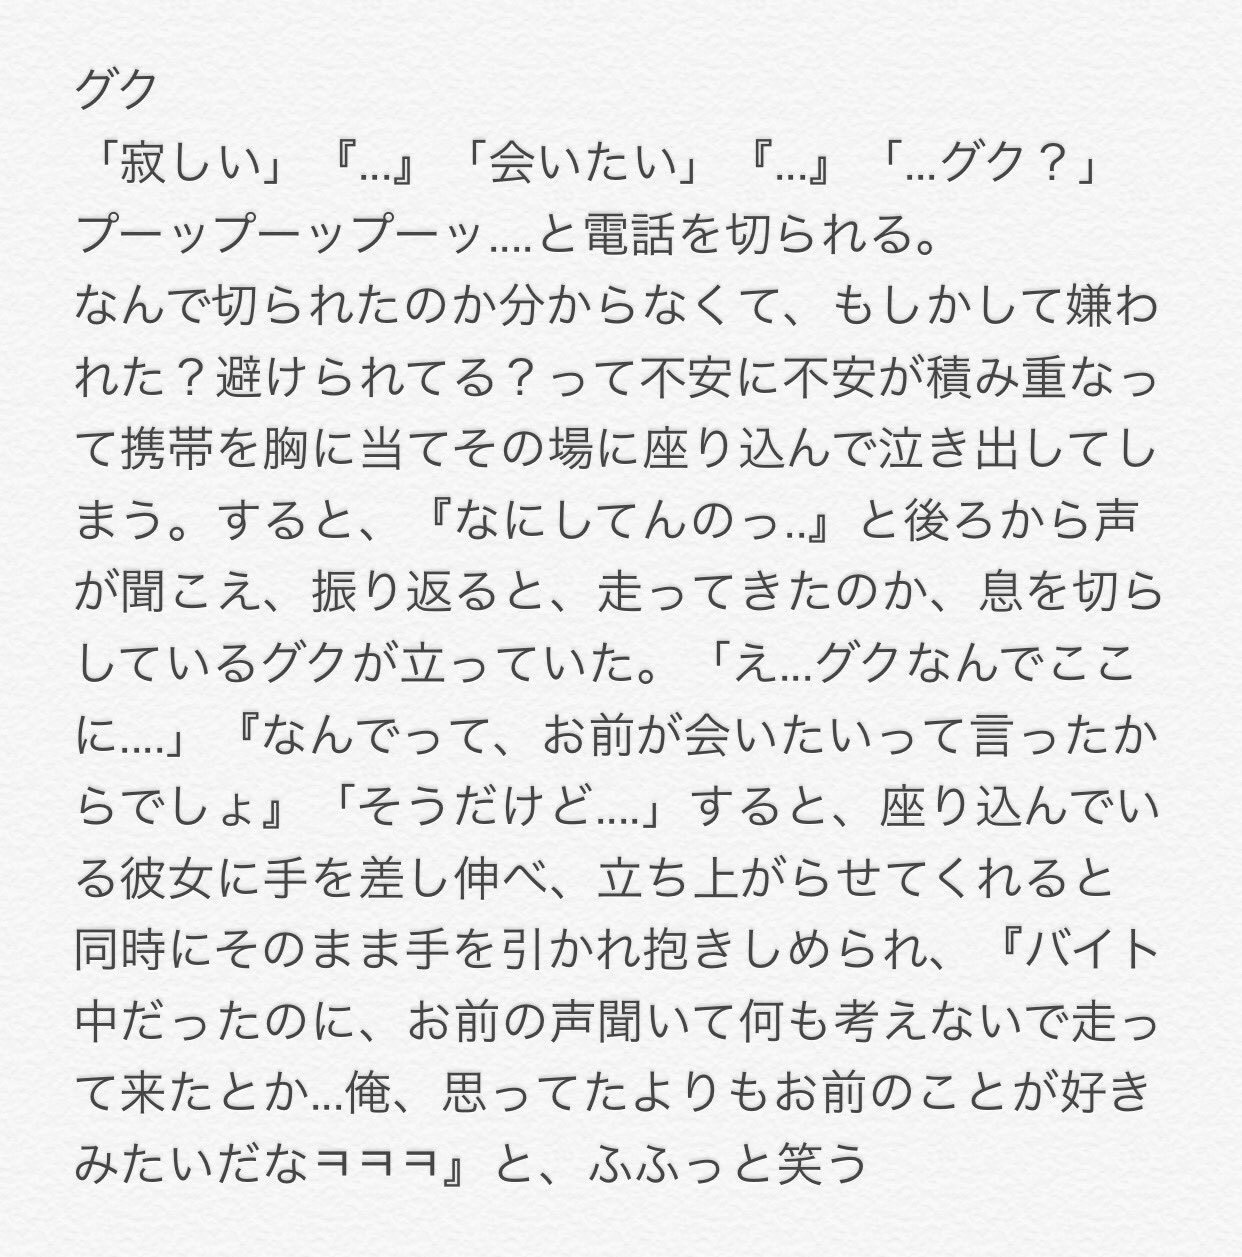 グク
「寂しい」『...』「会いたい」『...』「...グク？」
プーップーップーッ....と電話を切られる。
なんで切られたのか分からなくて、もしかして嫌わ
れた？避けられてる？って不安に不安が積み重なっ
て携帯を胸に当てその場に座り込んで泣き出してし
まう。すると、『なにしてんのっ..』と後ろから声
が聞こえ、振り返ると、走ってきたのか、息を切ら
しているグクが立っていた。「え...グクなんでここ
に....」『なんでって、お前が会いたいって言ったか
らでしょ』「そうだけど....」すると、座り込んでい
る彼女に手を差し伸べ、立ち上がらせてくれると
同時にそのまま手を引かれ抱きしめられ、『バイト
中だったのに、お前の声聞いて何も考えないで走っ
て来たとか...俺、思ってたよりもお前のことが好き
みたいだなㅋㅋㅋ』と、ふふっと笑う